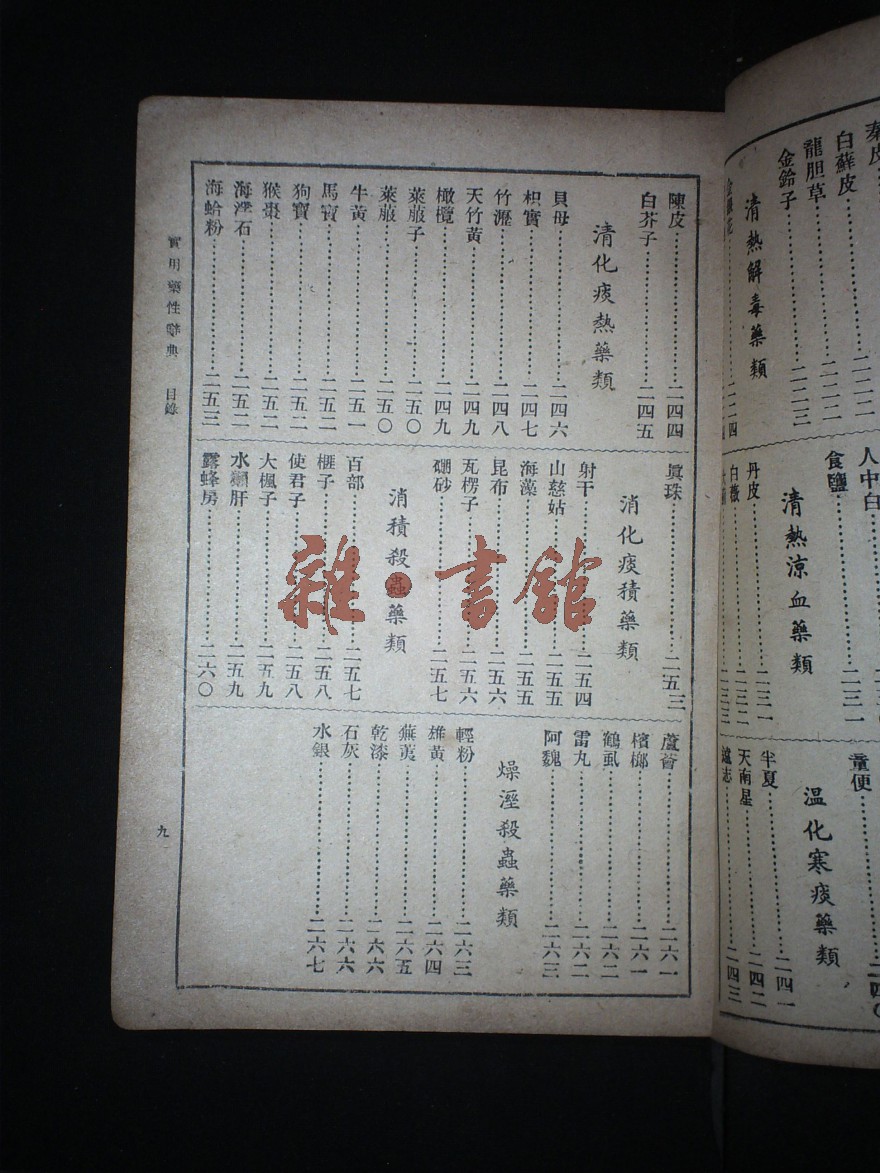 秦皮
白蘚皮……二二二
龍胆草……二二二
金鈴子……二二三
清熱解毒藥類
人中白
食鹽……二三一
清熱涼血藥類
丹皮……二三一
白薇……二三二
童便……二四〇
温化寒痰藥類
半夏……二四一
天南星……二四二
陳皮……二四四
白芥子……二四五
清化痰熱藥類
貝母……二四六
枳實……二四七
竹瀝……二四八
天竹黃……二四九
橄欖……二四九
萊菔子……二五〇
萊菔……二五〇
牛黃……二五一
馬寶……二五二
狗寶……二五二
猴棗……二五二
海浮石……二五二
海蛤粉……二五三
眞珠……二五三
消化痰積藥類
射干……二五四
山慈姑……二五五
海藻……二五五
昆布……二五六
瓦楞子……二五六
硼砂……二五七
消積殺蟲藥類
百部……二五七
榧子……二五八
使君子……二五八
大楓子……二五九
水獺肝……二五九
露蜂房……二六〇
蘆薈……二六一
檳榔……二六一
鶴虱……二六二
雷丸……二六二
阿魏……二六三
燥溼殺蟲藥類
輕粉……二六三
雄黃……二六四
蕪荑……二六五
乾漆……二六六
石灰……二六六
水銀……二六七
實用藥性辭典 目錄
九
雜·書館